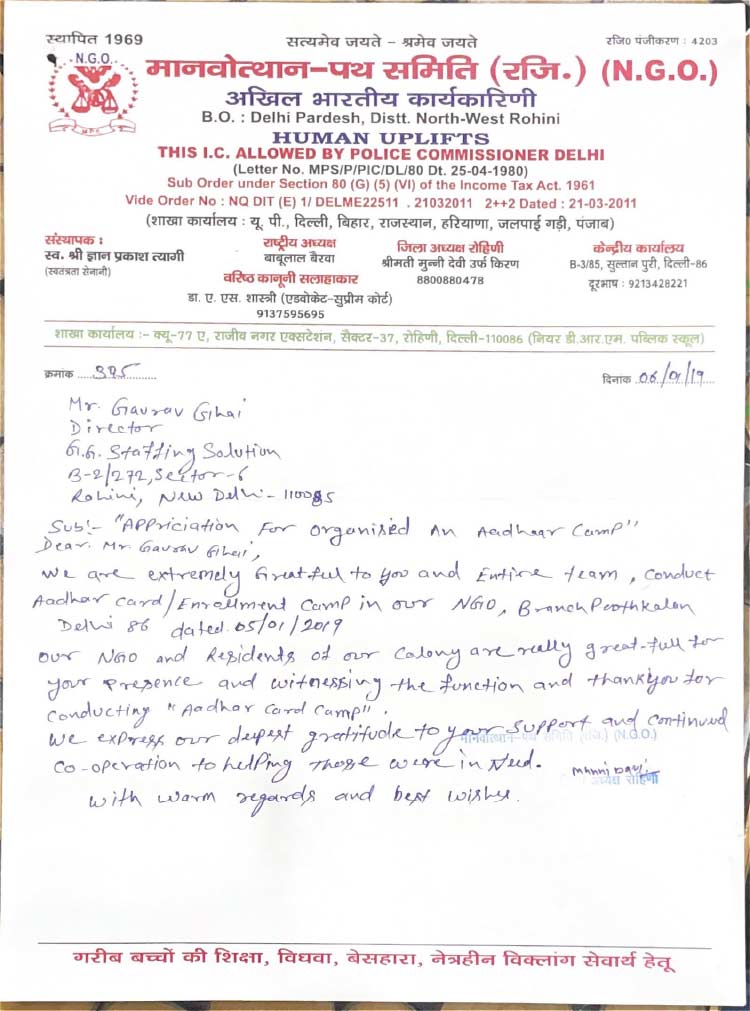 स्थापित 1969
सत्यमेव जयते - श्रमेव जयते
रजि0 पंजीकरण : 4203
N.G.O.
M P S
मानवोत्थान-पथ समिति (रजि.) (N.G.O.)
अखिल भारतीय कार्यकारिणी
B.O. : Delhi Pardesh, Distt. North-West Rohini
HUMAN UPLIFTS
THIS I.C. ALLOWED BY POLICE COMMISSIONER DELHI
(Letter No. MPS/P/PIC/DL/80 Dt. 25-04-1980)
Sub Order under Section 80 (G) (5) (VI) of the Income Tax Act. 1961
Vide Order No : NQ DIT (E) 1/ DELME22511 . 21032011 2++2 Dated : 21-03-2011
(शाखा कार्यालय : यू. पी., दिल्ली, बिहार, राजस्थान, हरियाणा, जलपाई गड़ी, पंजाब)
संस्थापक :
स्व. श्री ज्ञान प्रकाश त्यागी
(स्वतत्रता सेनानी)
राष्ट्रीय अध्यक्ष
बाबूलाल बैरवा
वरिष्ठ कानूनी सलाहाकार
डा. ए. एस. शास्त्री (एडवोकेट-सुप्रीम कोर्ट)
9137595695
जिला अध्यक्ष रोहिणी
श्रीमती मुन्नी देवी उर्फ किरण
8800880478
केन्द्रीय कार्यालय
B-3/85, सुल्तान पुरी, दिल्ली-86
दूरभाष : 9213428221
शाखा कार्यालय :- क्यू-77 ए, राजीव नगर एक्सटेशन, सैक्टर-37, रोहिणी, दिल्ली-110086 (नियर डी.आर.एम. पब्लिक स्कूल)
क्रमाक ..395..........
दिनांक .06/01/19...
Mr. Gaurav Ghai
Director
G.G. Staffing Solution
B-2/272, Sector-6
Rohini, New Delhi-110085
Sub:- "Appriciation For Organised An Aadhaar Camp"
Dear. Mr. Gaurav Ghai,
We are extremely Greatful to you and Entire team, Conduct
Aadhar Card/Enrollment Camp in our NGO, Branch Poothkalan
Delhi 86 dated 05/01/2019
Our NGO and Residents of our Colony are really great-full for
your Presence and witnessing the function and thankyou for
conducting "Aadhar Card Camp".
We express our deepest gratitude to your support and continued
मानवोत्थान-पथ समिति (रजि.) (N.G.O.)
Co-operation to helping those were in Need.
Munni Devi
अध्यक्ष रोहिणी
With warm regards and best wishes.
गरीब बच्चों की शिक्षा, विधवा, बेसहारा, नेत्रहीन विक्लांग सेवार्थ हेतू